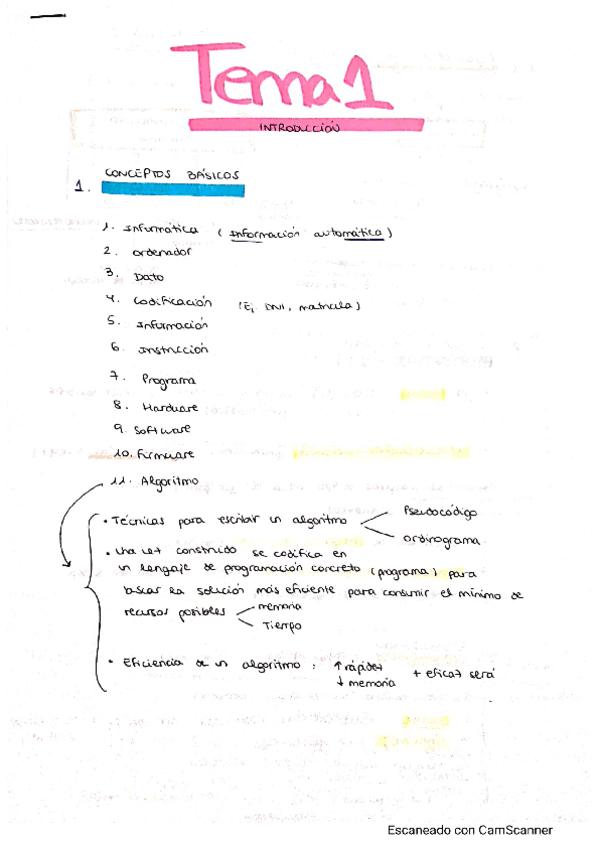 Tema 1
INTRODUCCIÓN
1. CONCEPTOS BÁSICOS
1. Informática (Información automática)
2. ordenador
3. Dato
4. Codificación (Ej DNI, matricula)
5. Información
6. Instrucción
7. Programa
8. Hardware
9. Software
10. Firmware
11. Algoritmo
• Técnicas para escribir un algoritmo
Pseudocódigo
ordinograma
• Una vez construido se codifica en
un lenguaje de programación concreto (programa) para
buscar la solución más eficiente para consumir el mínimo de
recursos posibles
memoria
Tiempo
• Eficiencia de un algoritmo:
↑ rápidez
↓ memoria
+ eficaz será
Escaneado con CamScanner